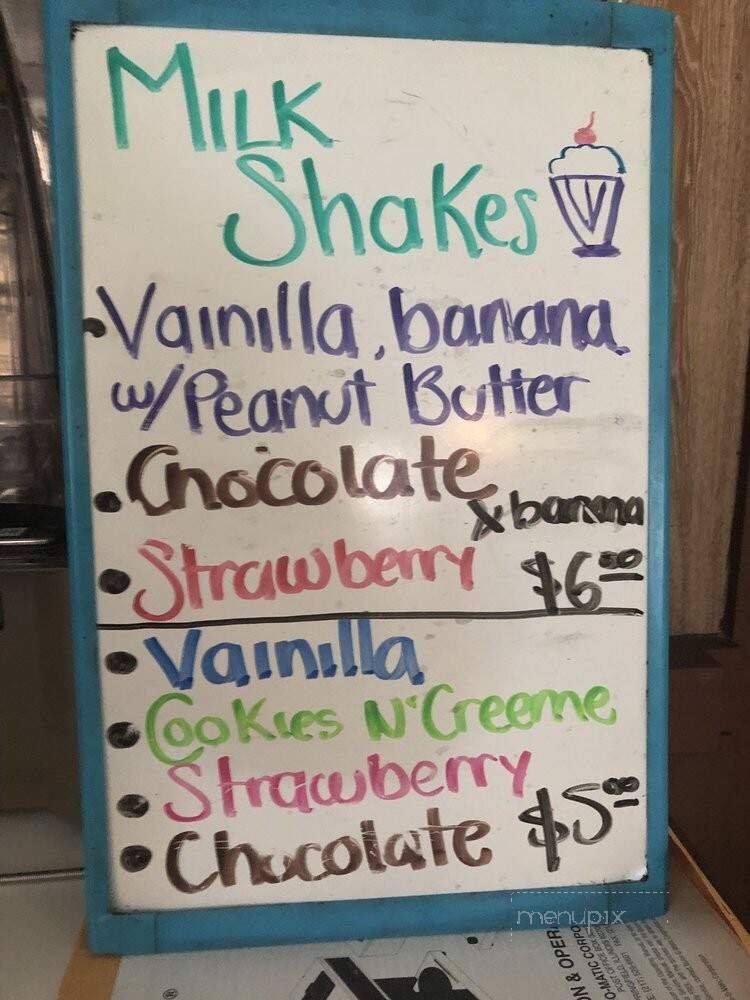 MILK
Shakes
Vainilla, banana
w/Peanut Butter
Chocolate
x banana
Strawberry $6.00
Vainilla
Cookies N'Creeme
Strawberry
Chocolate $5.00
menupix
ON & OPERA
O-MATIC CORPO